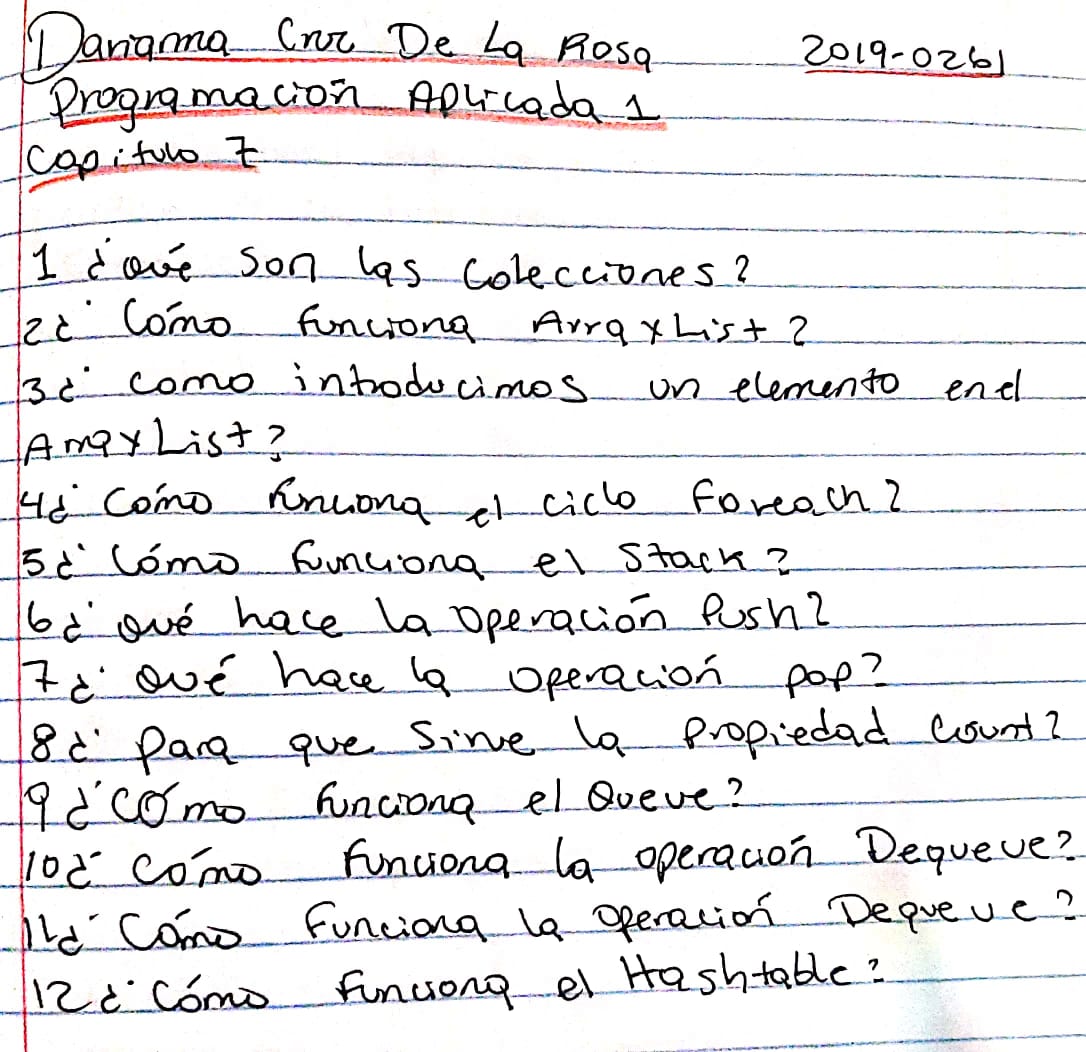 Darianna Cruz De La Rosa 2019-0261
Programación Aplicada 1
Capitulo 7
1 ¿Qué son las Colecciones?
2¿ Cómo funciona ArrayList?
3¿ como introducimos un elemento en el
ArrayList?
4¿ Cómo funciona el ciclo Foreach?
5¿ Cómo funciona el Stack?
6¿ Qué hace la operación Push?
7¿ Qué hace la operación pop?
8¿ Para que Sirve la Propiedad Count?
9¿ Cómo funciona el Queue?
10¿ Cómo funciona la operación Dequeue?
11¿ Cómo Funciona la operación Dequeue?
12¿ Cómo funciona el Hashtable?